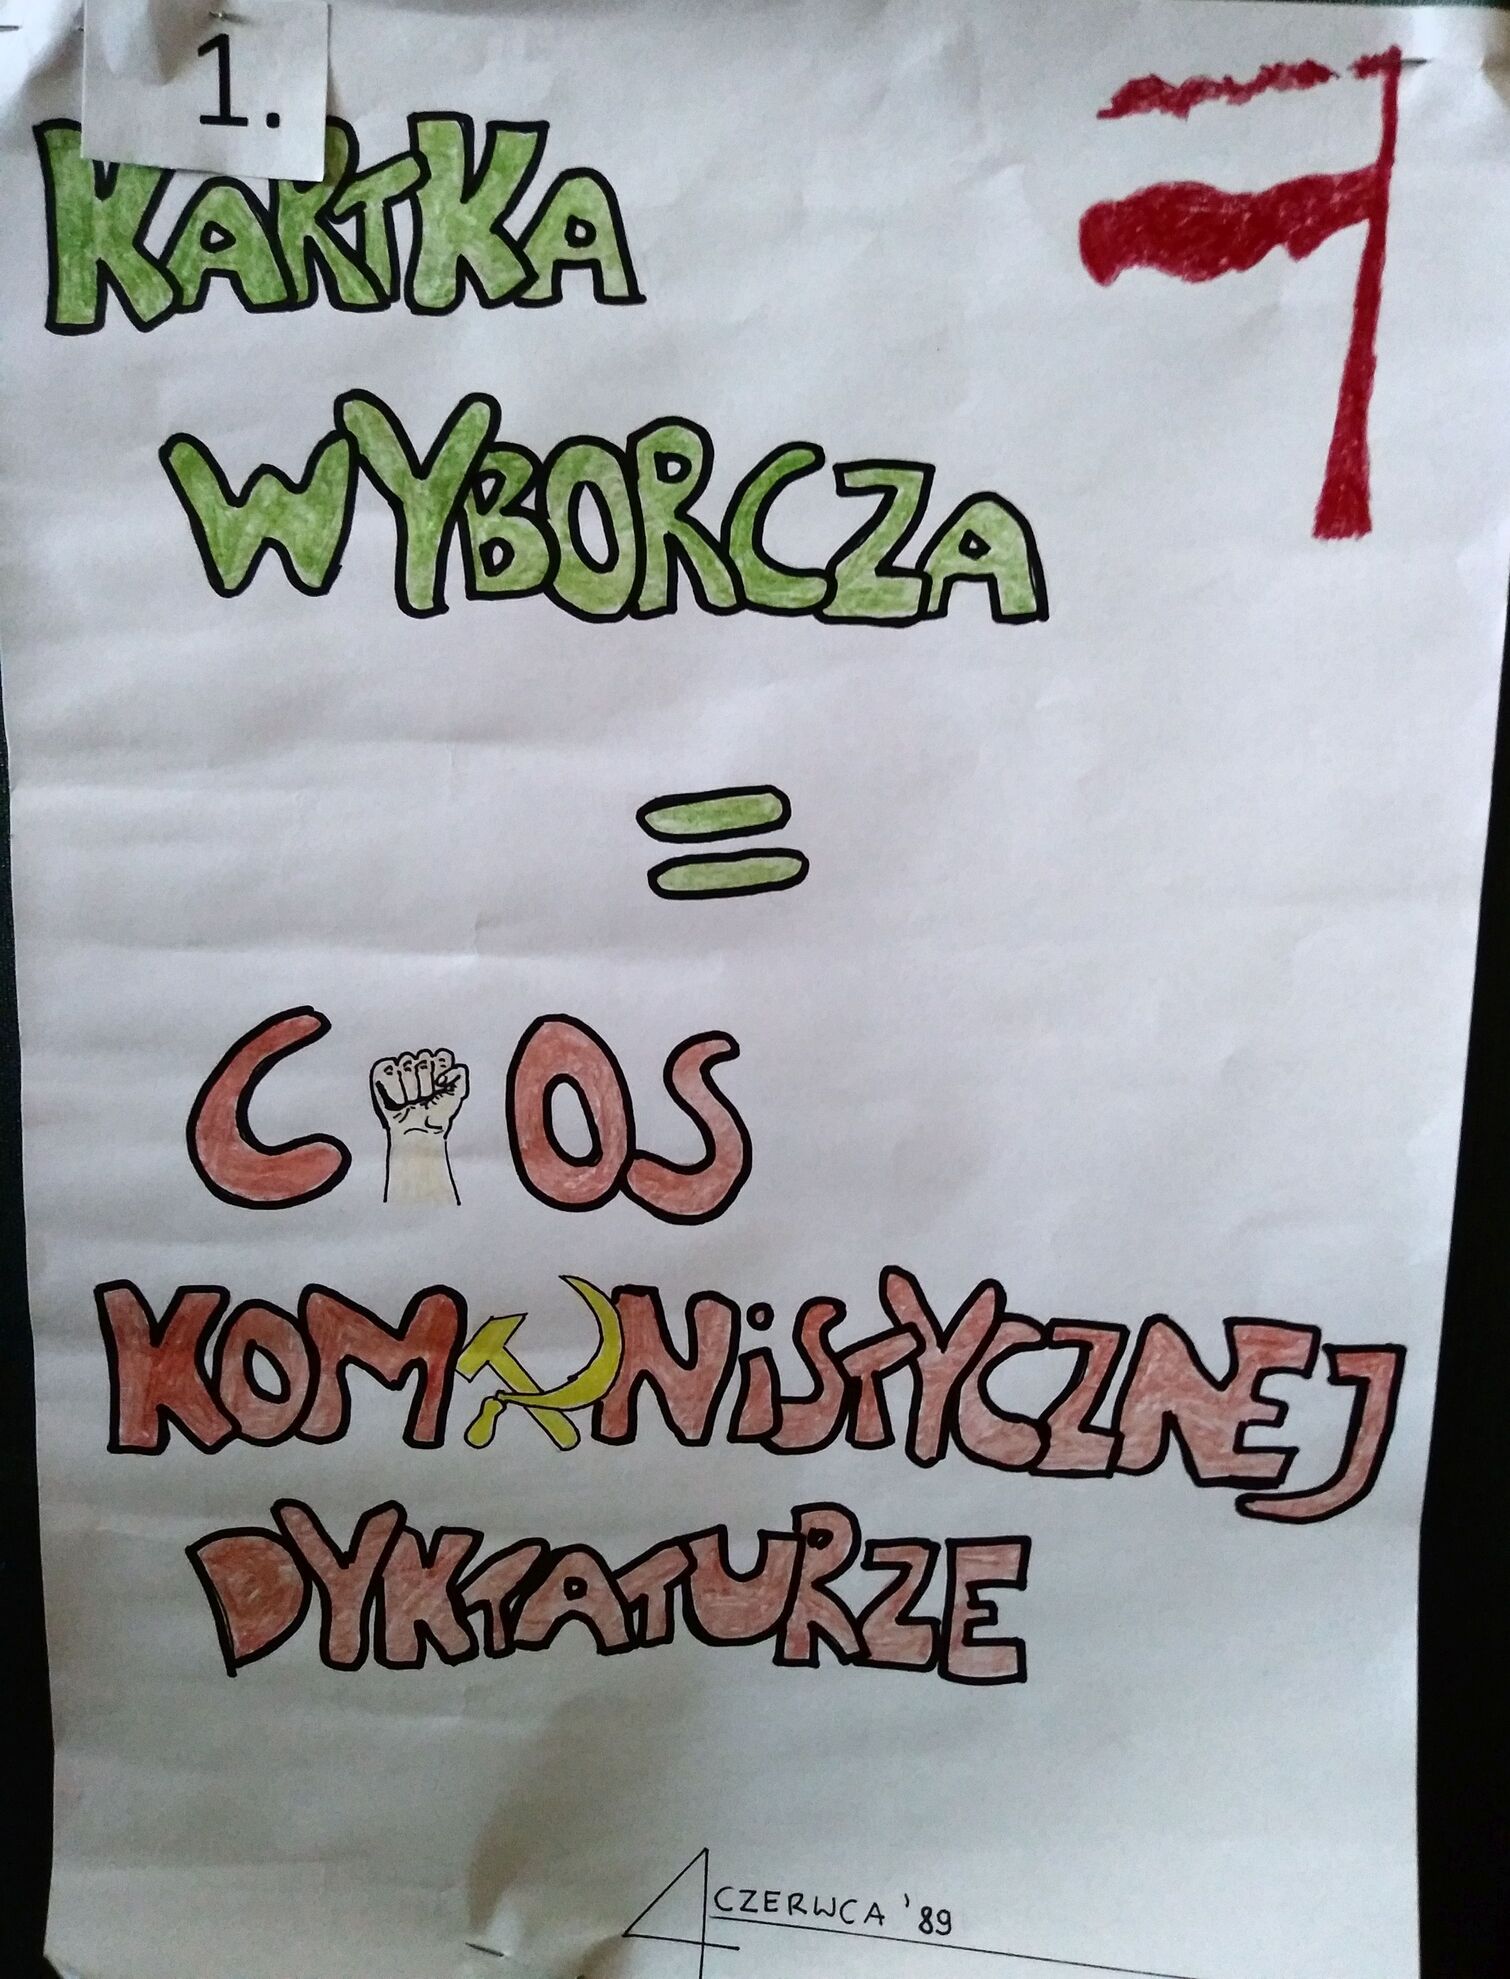 1.
KARTKA
WYBORCZA
=
CIOS
KOMUNISTYCZNEJ
DYKTATURZE
4 CZERWCA '89